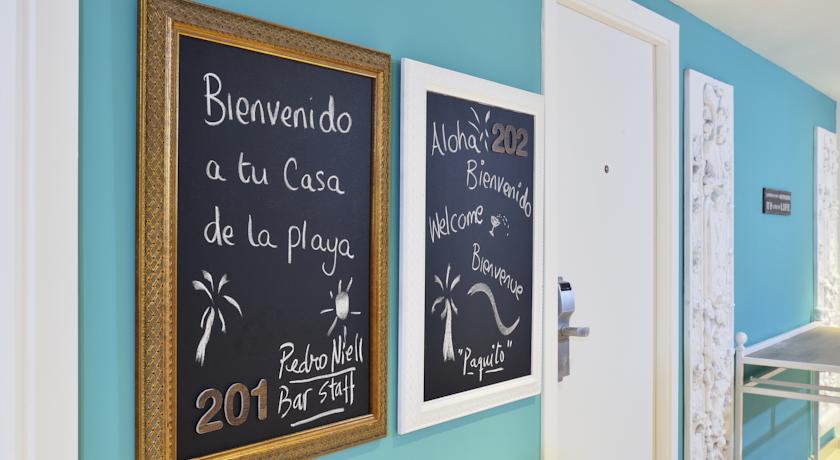 Bienvenido
a tu Casa
de la playa
Pedro Niell
Bar Staff
201
Aloha 202
Bienvenido
Welcome
Bienvenue
"Paquito"